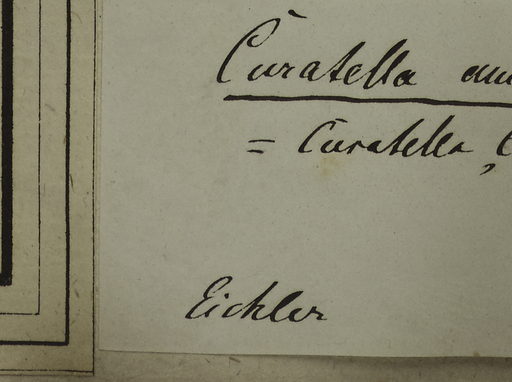 Curatella am
= Curatella, C
Eichler